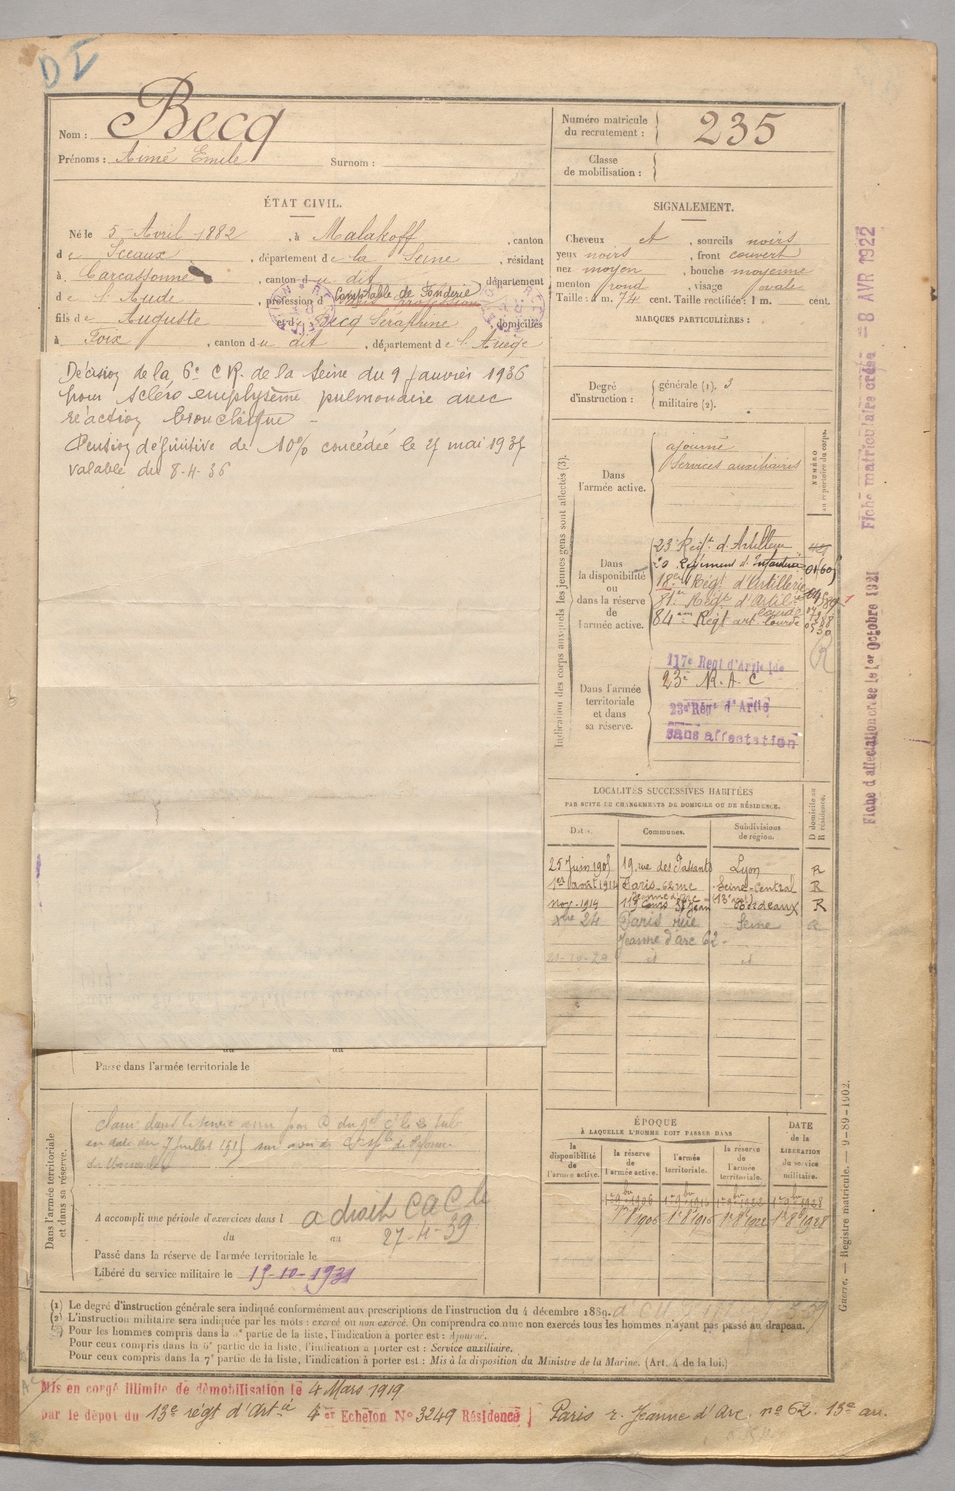 D I
Nom : Becq
Prénoms : Aimé Emile Surnom :
Numéro matricule
du recrutement : 235
Classe
de mobilisation :
ÉTAT CIVIL.
Né le 5 Avril 1882, à Malakoff, canton
de Sceaux, département de la Seine, résidant
à Carcassonne, canton du dit, département
de l'Aude, profession d Comptable de Fonderie
fils de Auguste et de Becq Séraphine domiciliés
à Foix, canton du dit, département de l'Ariège
SIGNALEMENT.
Cheveux, sourcils noirs
yeux noirs, front couvert
nez moyen, bouche moyenne
menton rond, visage ovale
Taille : 1 m. 74 cent. Taille rectifiée : 1 m. cent.
MARQUES PARTICULIÈRES :
Décision de la 6e C R. de la Seine du 9 Janvier 1936
pour scléro emphysème pulmonaire avec
réaction bronchique -
Pension définitive de 10% concédée le 27 mai 1937
valable du 8-4-36
Degré
d'instruction :
générale (1). 3
militaire (2).
Indication des corps auxquels les jeunes gens sont affectés (3).
NUMÉRO
au répertoire du corps.
Dans
l'armée active.
ajourné
Services auxiliaires
Dans
la disponibilité
ou
dans la réserve
de
l'armée active.
23e Régt d'Artillerie
20 Régiment d'Infanterie
18e Régt d'Artillerie
81e Régt d'Artil. lourde
84e Régt art. lourde
Dans l'armée
territoriale
et dans
sa réserve.
117e Régt d'Artie lde
23e R.A.C
23e Régt d'Artie
Sans affectation
LOCALITÉS SUCCESSIVES HABITÉES
PAR SUITE DE CHANGEMENTS DE DOMICILE OU DE RÉSIDENCE.
Dates.
Communes.
Subdivisions
de région.
D domicile ou
R résidence.
25 Juin 190 19 rue des Passants Lyon R
1er août 1914 Paris 62 rue Jeanne d'Arc (13e arr) Seine-Central R
nov. 1914 119 Cours St Jean Bordeaux R
Xbre 24 Paris rue Seine
Jeanne d'arc 62.
21-10-29 id id
Passé dans l'armée territoriale le
Dans l'armée territoriale
et dans sa réserve.
en date du 7 juillet
A accompli une période d'exercices dans l
a droit C a C
27-4-39
du au
Passé dans la réserve de l'armée territoriale le
Libéré du service militaire le 15-10-1931
ÉPOQUE
À LAQUELLE L'HOMME DOIT PASSER DANS
la
disponibilité
de
l'armée active.
la réserve
de
l'armée active.
l'armée
territoriale.
la réserve
de
l'armée
territoriale.
DATE
de la
LIBÉRATION
du service
militaire.
1er 8bre 1906 1er 8bre 1916 1er 8bre 1922 1er 8bre 1928
(1) Le degré d'instruction générale sera indiqué conformément aux prescriptions de l'instruction du 4 décembre 1889.
(2) L'instruction militaire sera indiquée par les mots : exercé ou non exercé. On comprendra comme non exercés tous les hommes n'ayant pas passé au drapeau.
(3) Pour les hommes compris dans la 2e partie de la liste, l'indication à porter est : Ajourné.
Pour ceux compris dans la 6e partie de la liste, l'indication à porter est : Service auxiliaire.
Pour ceux compris dans la 7e partie de la liste, l'indication à porter est : Mis à la disposition du Ministre de la Marine. (Art. 4 de la loi.)
Mis en congé illimité de démobilisation le 4 Mars 1919
par le dépôt du 13e régt d'Artie 4er Echelon No 3249 Résidence Paris r. Jeanne d'Arc. no 62. 13e arr.
Fiche d'affectation créée le 1er Octobre 1921
Fiche matriculaire créée - 8 AVR 1922
Guerre. — Registre matricule. — 9-89-1902.